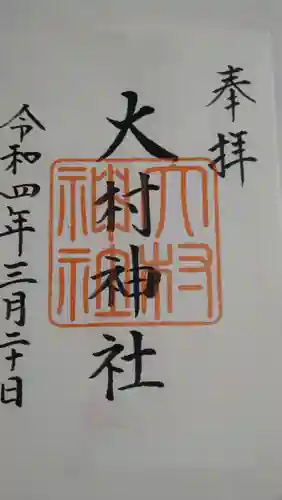 奉拝
大村神社
大村
神社
令和四年三月二十日